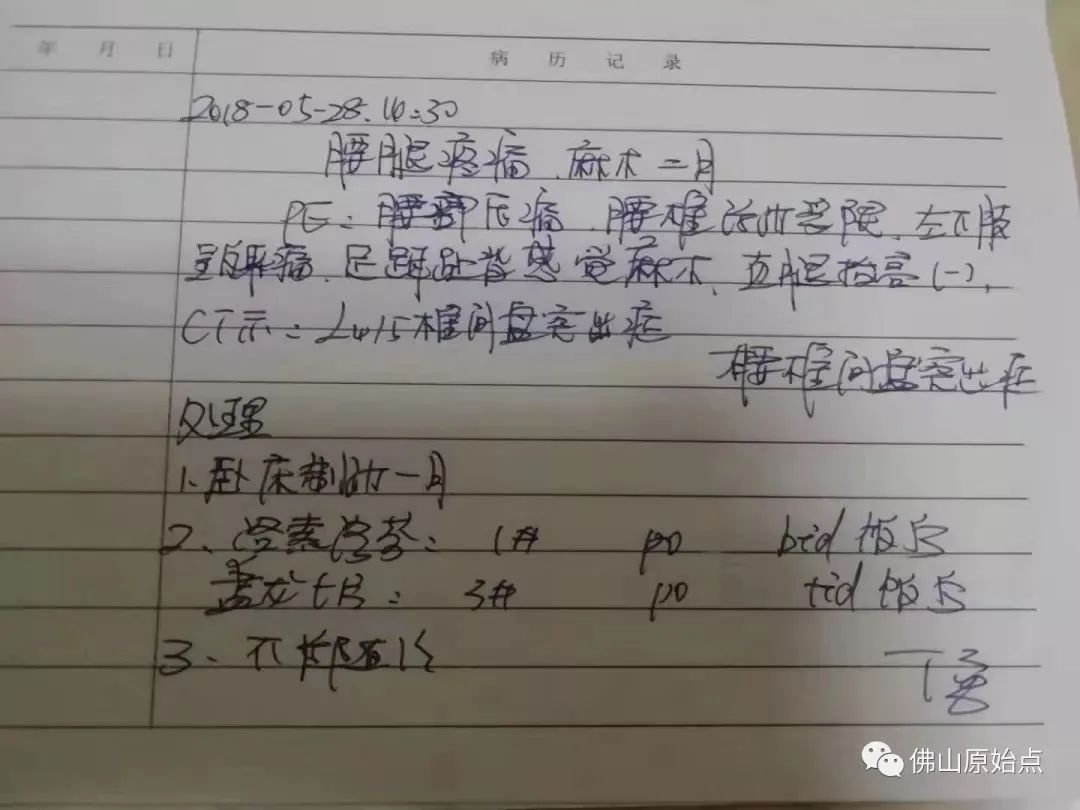 年 月 日 病历记录
2018-05-28. 16:30
腰腿疼痛、麻木一月
PE: 腰部压痛、腰椎活动受限、左下肢
放射痛、足背感觉麻木、直腿抬高(-)、
CT示: L4/5椎间盘突出症
腰椎间盘突出症
处理
1. 卧床制动一月
2. 1# po bid 饭后
3# po tid 饭后
3. 不适随诊
佛山原始点